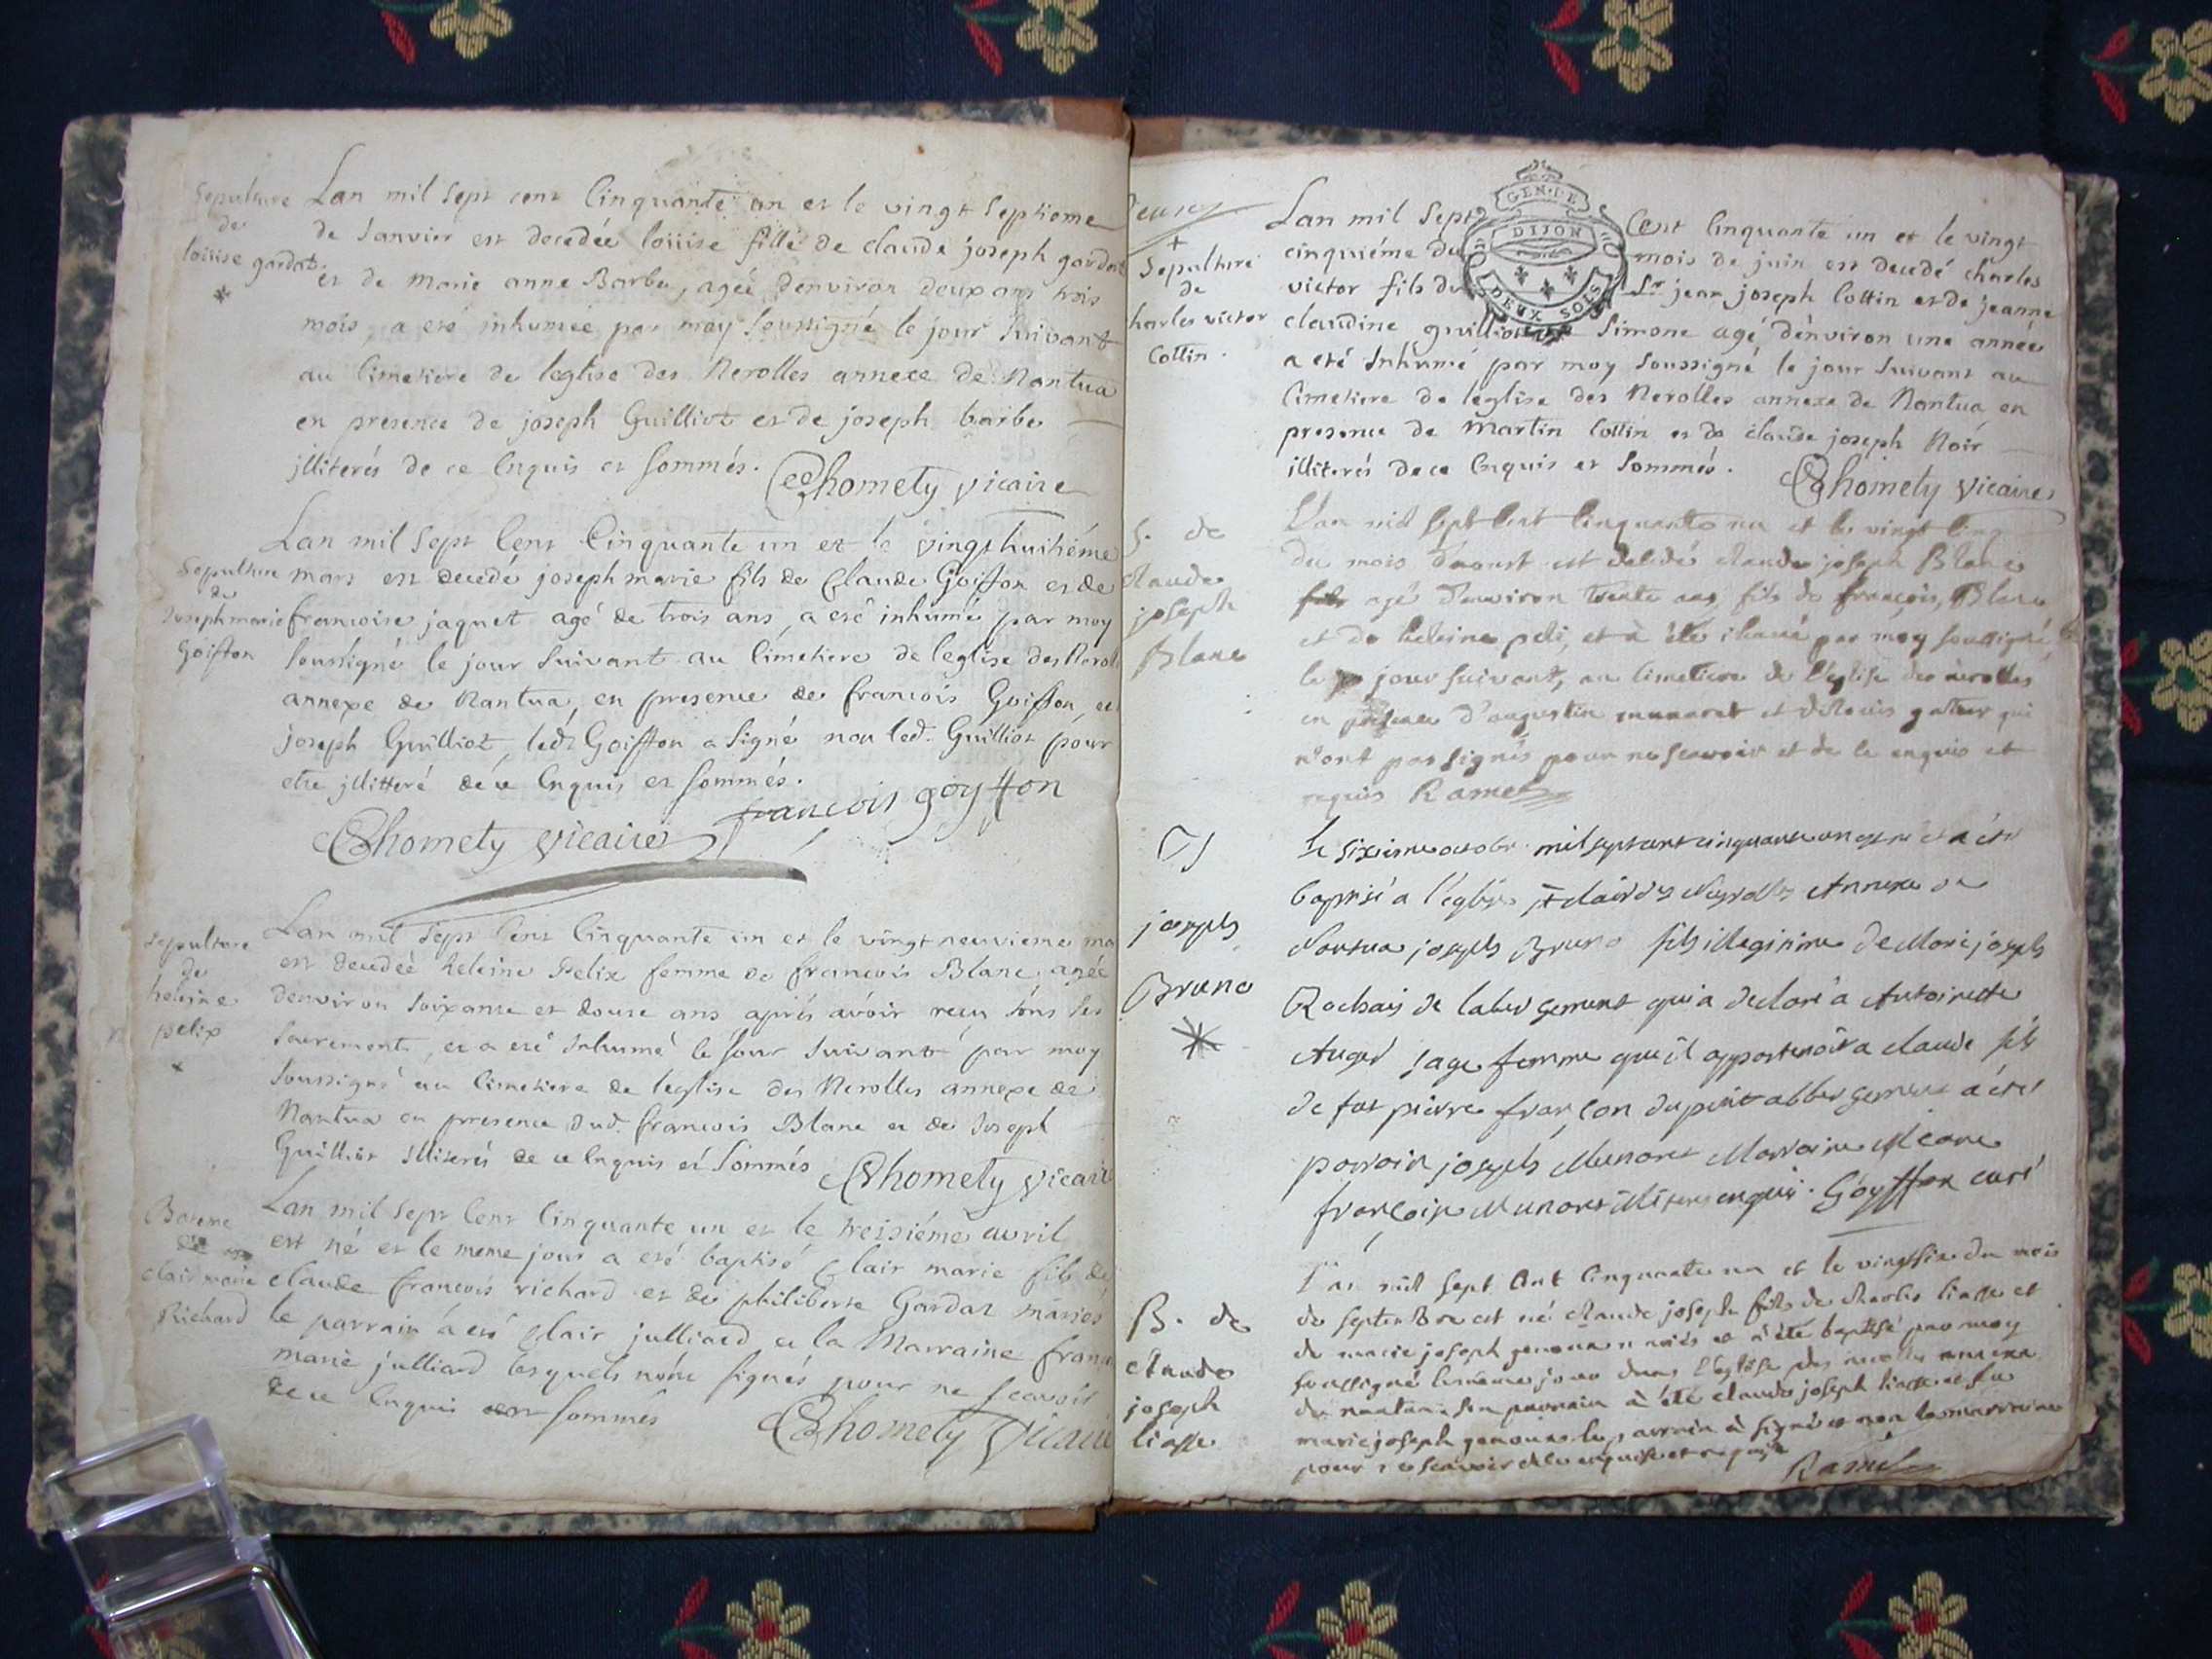 Sepulture
de
loüise gardat
Lan mil sept cent Cinquante un et le vingt Septieme
de Janvier est decedée loüise fille de claude joseph gardat
et de Marie anne Barbe, agée denviron deux ans trois
mois, a eté inhumée par moy Soussigné le jour Suivant
au Cimetiere de leglise des Nerolles annexe de Nantua
en presence de joseph Guilliot et de joseph barbe
jlliterés de ce Enquis et Sommés. Chomety vicaire
Sepulture
de
Joseph marie
Goiffon
Lan mil Sept Cent Cinquante un et le vingt huitiéme
mars est decedé joseph marie fils de Claude Goiffon et de
francoise jaquet agé de trois ans, a eté inhumé par moy
Soussigné le jour Suivant au Cimetiere de leglise des Neroll
annexe de Nantua, en presence de francois Goiffon, et
joseph Guilliot, ledt Goiffon a Signé non led. Guilliot pour
etre jllitteré de ce Enquis et Sommés.
françois goyffon
Chomety vicaire
Sepulture
de
heleine
pelix
Lan mil Sept Cent Cinquante un et le vingt neuvieme ma
est decedée heleine Pelix femme de francois Blanc, agée
denviron Soixante et douse ans aprés avoir recu tous les
Sacrements, et a eté Inhumé le Jour Suivant par moy
Soussigné au Cimetiere de leglise des Nerolles annexe de
Nantua en presence dud. francois Blanc et de Joseph
Guilliot Illiterés de ce Enquis et Sommés Chomety vicaire
Bateme
de
Clair marie
Richard
Lan mil Sept Cent Cinquante un et le treisiéme avril
est né et le meme jour a eté baptisé Clair marie fils de
claude francois richard et de philiberte Gardat mariés
le parrain a eté Clair julliard et la Marraine franc
marie julliard lesquels nont signés pour ne scavoir
de ce Enquis et Sommés
Chomety Vicaire
+
Sepulture
de
charles victor
Cottin.
Lan mil Sept Cent Cinquante un et le vingt
cinquiéme du mois de juin est decedé charles
victor fils du Sr jean joseph Cottin et de jeanne
claudine guilliot Simone agé denviron une année
a eté Inhumé par moy Soussigné le jour Suivant au
Cimetiere de leglise des Nerolles annexe de Nantua en
presence de Martin Cottin et de claude joseph Noir
illiterés de ce Enquis et Sommés.
Chomety vicaire
GEN. DE
DIJON
DEUX SOLS
S. de
claude
joseph
Blanc
L'an mil sept Cent Cinquante un et le vingt Cinq
du mois d'aoust est decédé claude joseph Blanc
fils agé d'environ trente ans, fils de francois Blanc
et de heleine peli, et à été inhumé par moy soussigné
le jour suivant, au Cimetiere de l'église des nérolles
en présence d'augustin munaret et de
n'ont pas signés pour ne scavoir et de ce enquis et
requis Ramel
joseph
Bruno
Le sixieme octobre mil sept cent cinquante un est né et a été
baptisé a l'église St clair des Neyrolles Annexe de
Nantua joseph Bruno fils illegitime de Marie joseph
Rochais de labergement qui a declaré a Antoinette
Auger sage femme que il appartenoit a claude fils
de fut pierre françon du petit abbergement a été
parrain joseph Munaret Marraine
françoise Munaret illiteres enquis. Goyffon curé
B. de
claude
joseph
liasse
L'an mil sept Cent Cinquante un et le vingt six du mois
de septembre est né claude joseph fils de charles liasse et
de marie joseph mariés et à été baptisé par moy
soussigné le même jour dans l'église des nérolles annexe
de nantua. son parrain à été claude joseph liasse et sa
marie joseph le parrain à signé et non la marraine
pour ne scavoir de ce enquise et requise
Ramel